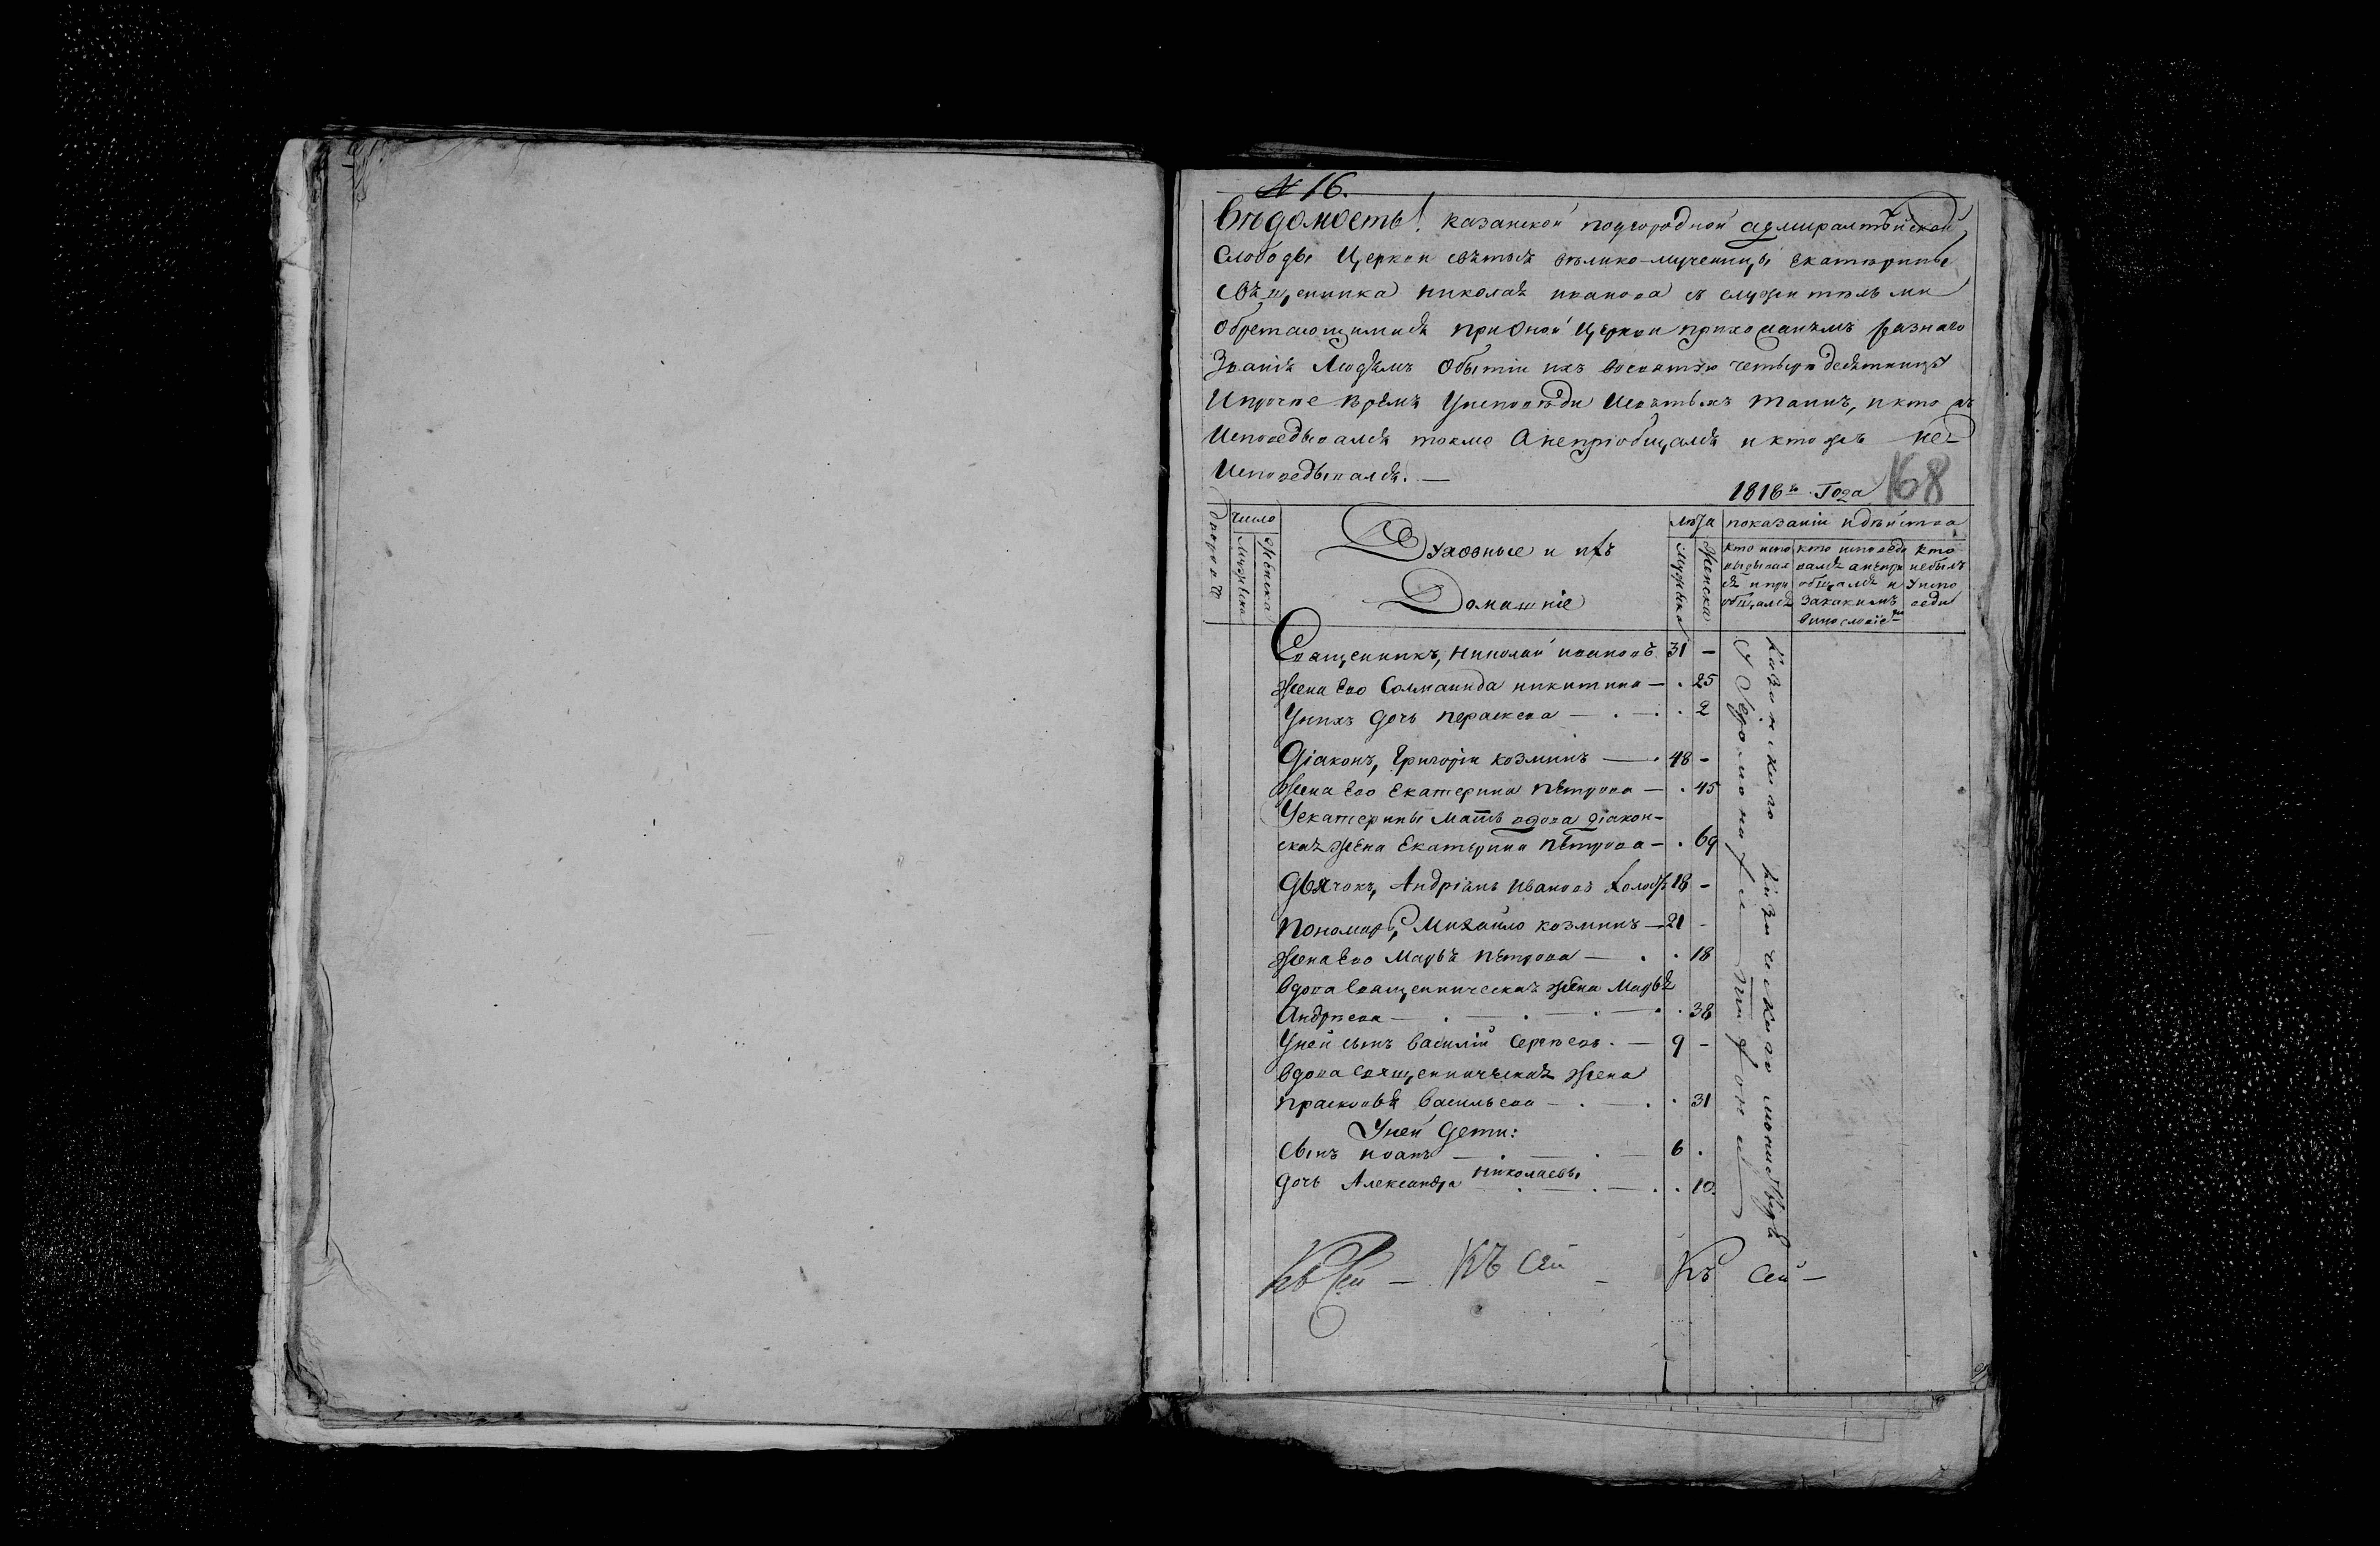 № 16.
Вѣдомость! казанской подгородной адмиралтѣйской
Слободы Церкви свѣтыѣ вѣлико-мученицы Екатѣрины
свѣщенника николаѣ иванова съ служительми
обретающимисѣ при оной Церкви прихожанѣмъ разнаго
Званіѣ Людѣмъ Обытіи ихъ восвятую четыредесѣтницу
Ипрочие врѣмѣ Уисповѣди Исвѣтыхъ таинъ, икто жъ
Исповедывалсѣ токмо Анепріобщалсѣ и кто жъ не
Исповедывалсѣ. —
1818го Года 168
Число
Мужеска
Женска
Духовные и ихъ
Домашніе
лѣта
Мужеска
Женска
показаніи идѣйства
кто испо
ведывал
сѣ и при
общалсѣ
кто исповеды
валсѣ анепри
общалсѣ и
Закакимъ
винословіемъ
кто
небылъ
Уиспо
веди
Священникъ, николай ивановъ 31 —
Жена Ево Соломанида никитина — . 25
Унихъ дочь параскева — . — . 2
Діаконъ, Григорій козминъ — . 48 —
Жена Ево Екатерина пѣтрова — . 45
Уекатерины мать вдова діакон-
скаѣ жена Екатерина пѣтрова — . 69
Дьячокъ, Андріанъ ивановъ холостъ 18 —
Пономарь, Михайло козминъ — 21 -
Жена Ево Марьѣ пѣтрова — . . 18
Вдова Священническаѣ жена Марьѣ
Андрѣева — . — . — . — . 38
Уней сынъ Василій Сергѣевъ . — 9 —
Вдова Священническаѣ жена
Прасковьѣ Васильева — . — . . 31
Уней дети:
Сынъ иванъ — . — . — 6 .
дочь Александра николаевы — . — . — . . 10.
Казанскаго Кизическаго монастыря
Къ Сей — Къ сей — Къ Сей —